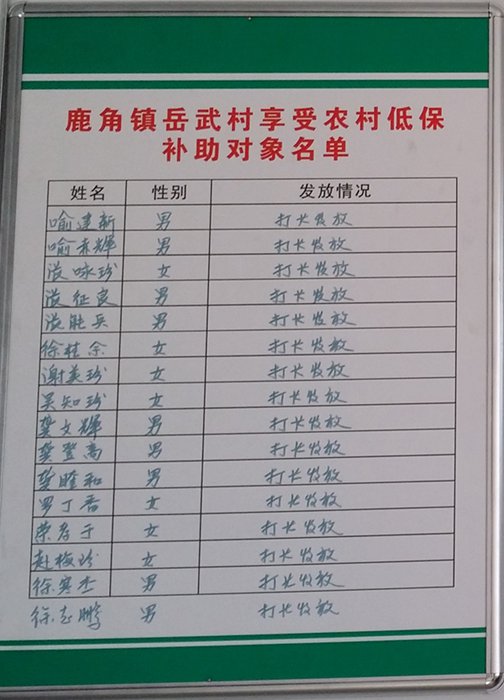 鹿角镇岳武村享受农村低保
补助对象名单
姓名 性别 发放情况
喻建新 男 打卡发放
喻赤辉 男 打卡发放
咏珍 女 打卡发放
征良 男 打卡发放
兵 男 打卡发放
徐桂余 女 打卡发放
谢美珍 女 打卡发放
吴知珍 女 打卡发放
龚文辉 男 打卡发放
龚登高 男 打卡发放
龚 和 男 打卡发放
罗丁香 女 打卡发放
荣 于 女 打卡发放
赵梅珍 女 打卡发放
徐寒杰 男 打卡发放
徐志鹏 男 打卡发放